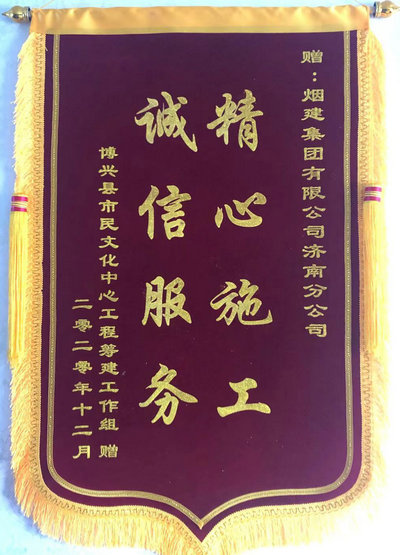 赠：烟建集团有限公司济南分公司
精心施工
诚信服务
博兴县市民文化中心工程筹建工作组 赠
二零二零年十二月